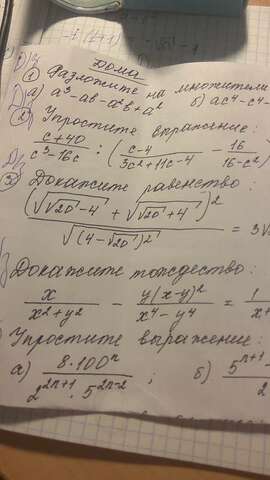 Дома
① Разложите на множители
а) a³-ab-a²b+a² б) ac⁴-c⁴-
② Упростите выражение:
c+40 / c³-16c : ( c-4 / 3c²+11c-4 - 16 / 16-c² )
③ Докажите равенство:
(√(√20-4) + √(√20+4))² / √((4-√20)²) = 3√
Докажите тождество:
x / x²+y² - y(x-y)² / x⁴-y⁴ = 1 / x+
Упростите выражение:
а) 8·100ⁿ / 2²ⁿ⁺¹ · 5²ⁿ⁻² ; б) 5ⁿ⁺¹- / 2